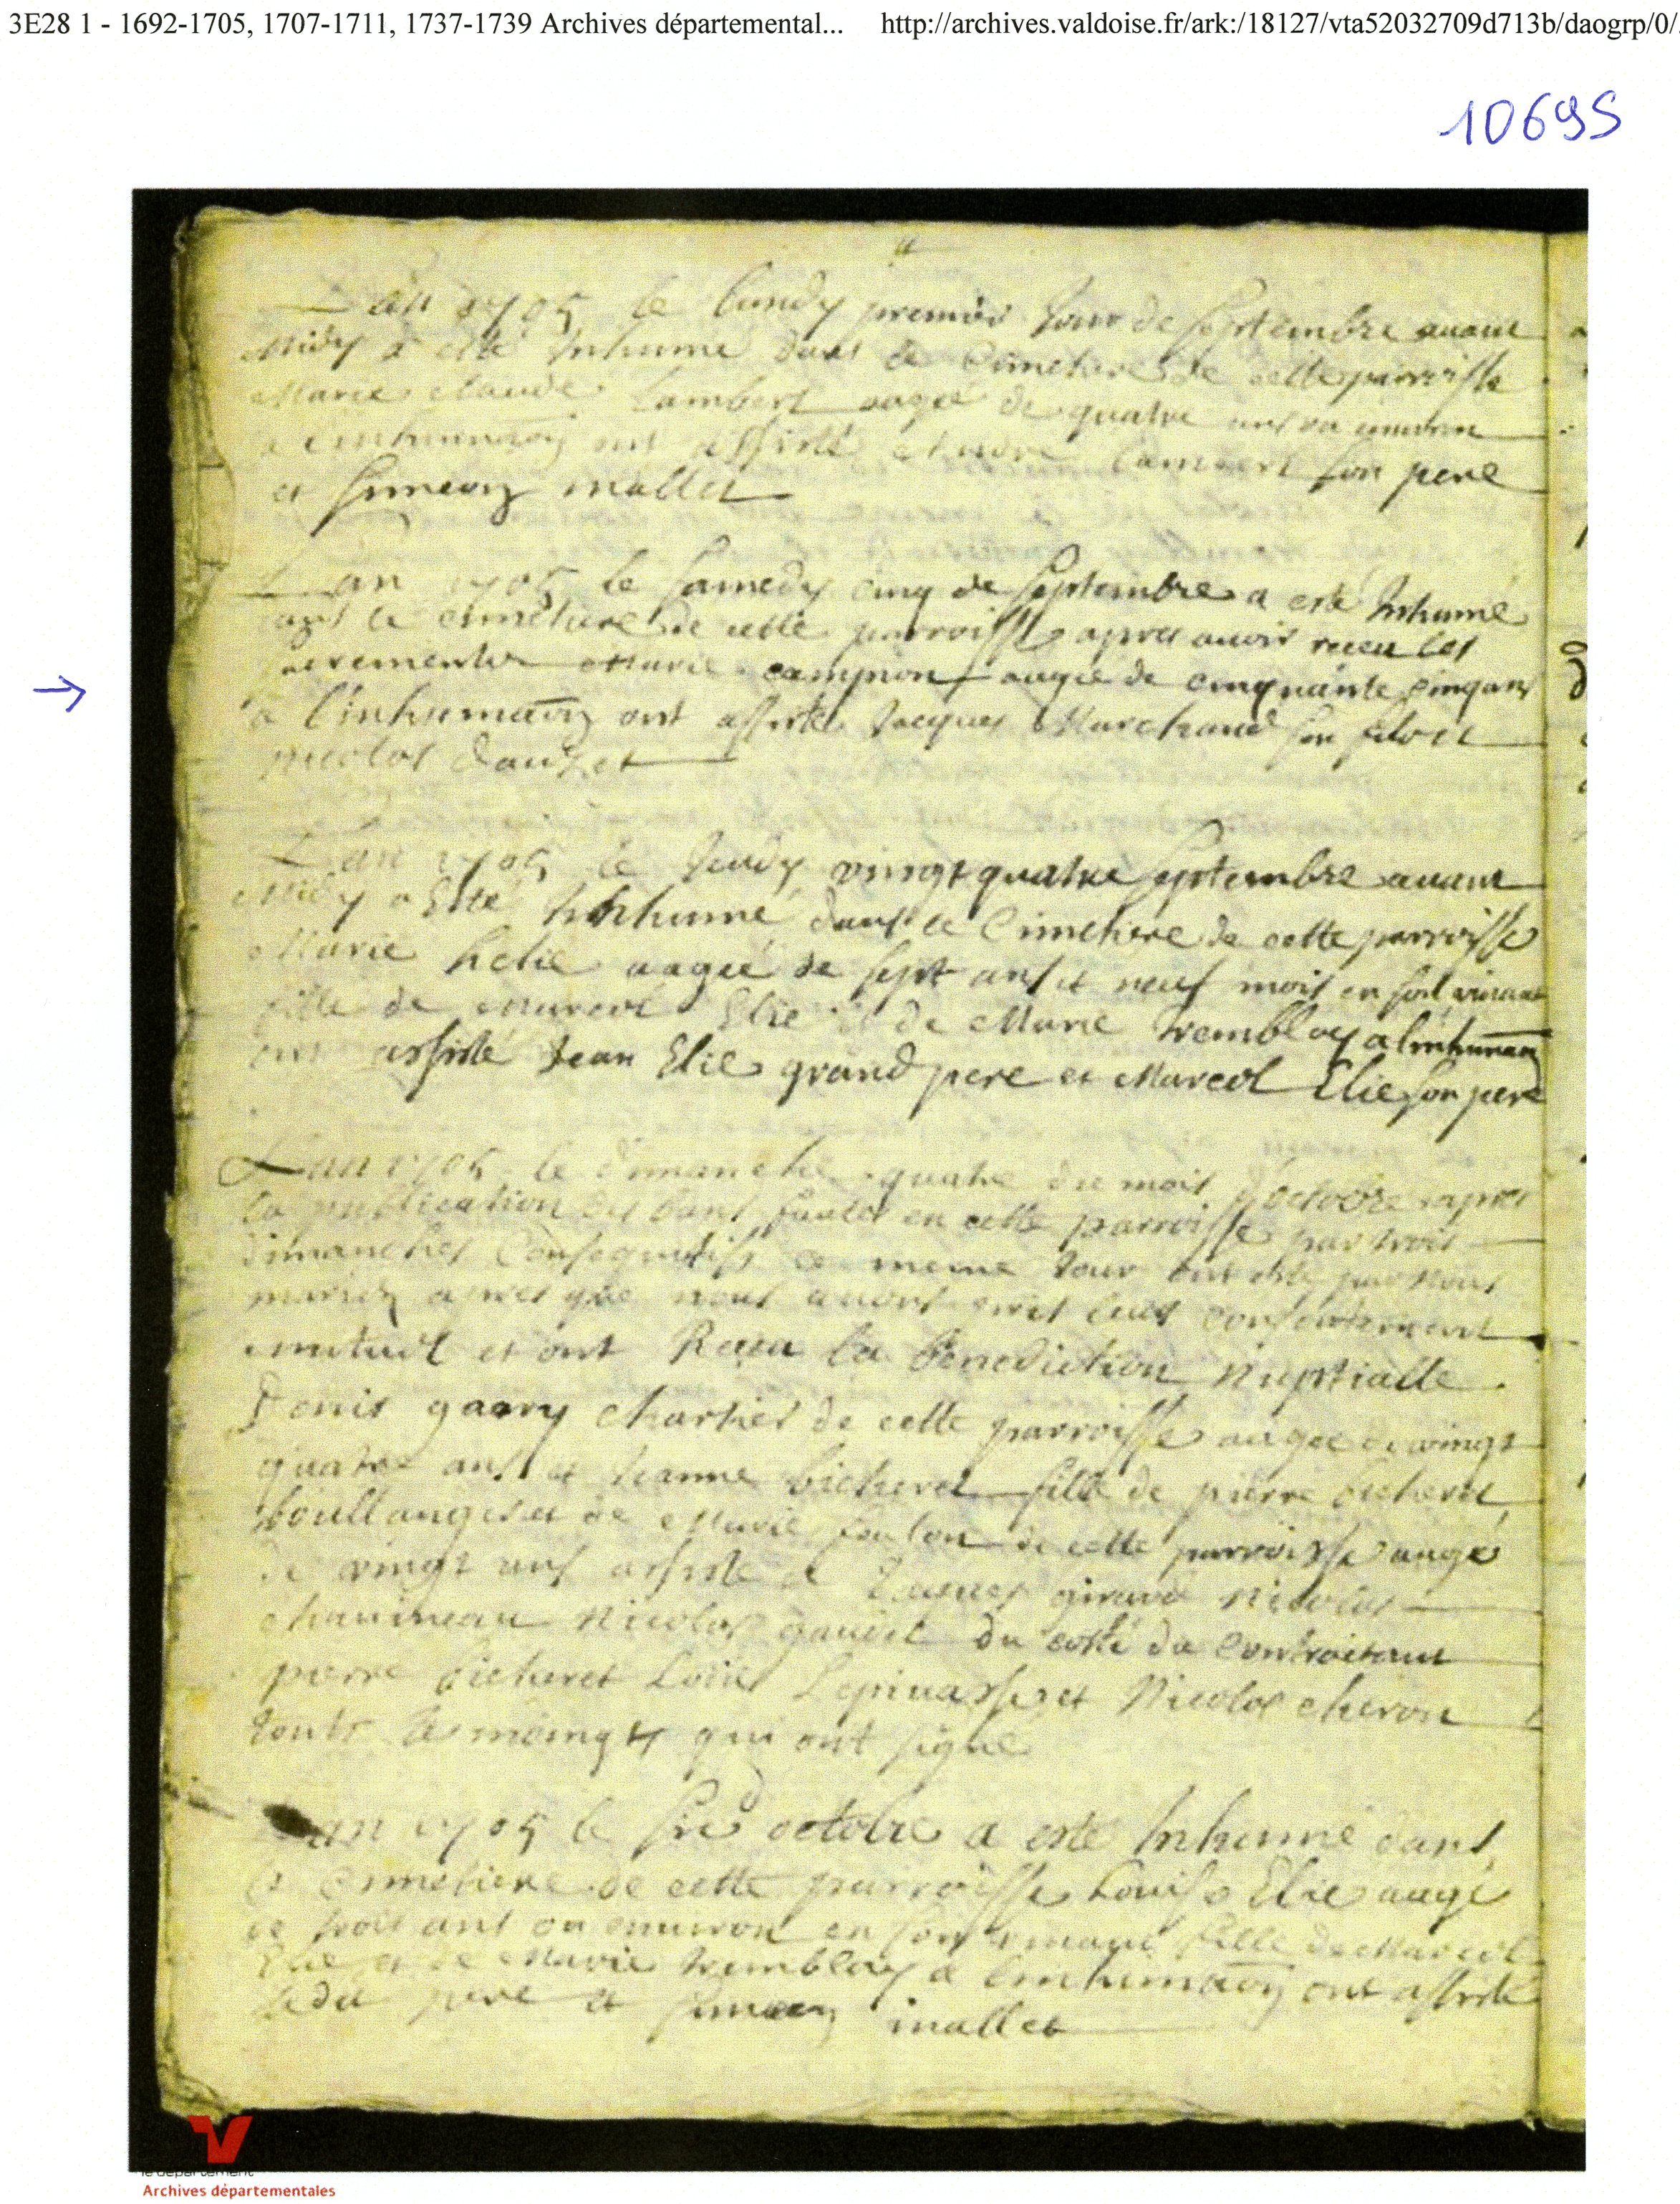 3E28 1 - 1692-1705, 1707-1711, 1737-1739 Archives départemental...
http://archives.valdoise.fr/ark:/18127/vta52032709d713b/daogrp/0/
10695
Lan 1705 le lundy premier Jour de septembre auant
Midy a esté Inhumé dans le Cimetiere de cette parroisse
Marie claude Lambert aagée de quatre ans ou enuiron
a l'inhumaõn ont assisté Lambert son pere
et simeon mallet
Lan 1705 le samedy cinq de septembre a esté Inhumé
le cimetiere de cette parroisse apres auoir receu les
sacrements Marie campion aagée de cinquante cinq ans
a l'inhumaõn ont assisté Jacques Marchand son fils et
nicolas dauzet
Lan 1705 le Jeudy vingt quatre septembre auant
Midy a Esté Inhumé dans le Cimetiere de cette parroisse
Marie helie aagée de sept ans et neuf mois en son viuant
fille de Marcol Elie et de Marie trembloy a linhumaõn
ont assisté Jean Elie grand pere et Marcol Elie son pere
Lan 1705 le dimanche quatre du mois d'octobre apres
la publication des bans faites en cette parroisse par trois
dimanches Consequutifs ce meme Jour ont esté par nous
mariez apres que nous auons pris leur consentement
mutuel et ont Receu la Benediction Nuptialle
Denis gaary chartier de cette parroisse aagé de vingt
quatre ans et Jeanne bicheret fille de pierre bicheret
boullanger et de Marie foulon de cette parroisse aagé
de vingt ans assisté de Jaques girard Nicolas
chauineau Nicolas gaudet du costé du Contractant
pierre bicheret Loüis Lepinasse et Nicolas cheron
touts temoings qui ont signé
Lan 1705 le six octobre a esté Inhumé dans
le Cimetiere de cette parroisse Louise Elie aagé
de trois ans ou enuiron en son viuant fille de Marcol
Elie et de Marie trembloy a linhumaõn ont assisté
ledit pere et simeon mallet
le département
Archives départementales